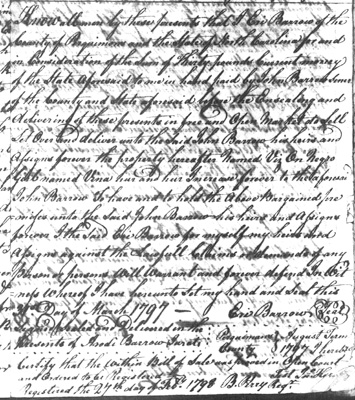 Know all men by these presents that I Eri Barrow of the
County of Perquimans and the State of North Carolina for and
in Consideration of the Sum of Thirty pounds Current money
of the State Aforesaid to me in hand paid by John Barrow
of the County and State aforesaid before the Ensealing and
delivering of these presents in free and Open Market do sell
Set Over and deliver unto the said John Barrow his heirs and
Assigns forever the property hereafter Named Viz On Negro
Girl named Vina hur and hur Increase forever to the aforesaid
John Barrow To have and to hold the Above Bargained pre
mises unto the Said John Barrow his heirs and Assigns
forever I the said Eri Barrow for myself my heirs and
Assigns against the Lawfull Claims or demands of any
Person or persons Will Warrant and forever defend In Wit
ness Whereof I have hereunto Set my hand and Seal this
Day of March 1797 Eri Barrow Seal
Signed Sealed and Delivered in the
Presents of Barrow Jurat Perquimans County August Term 1797
Certify that the Within Bill of Sale was proved in Open Court
and Ordered to be Registered Test
Registered the 27th day of 1798 B. Perry Regr